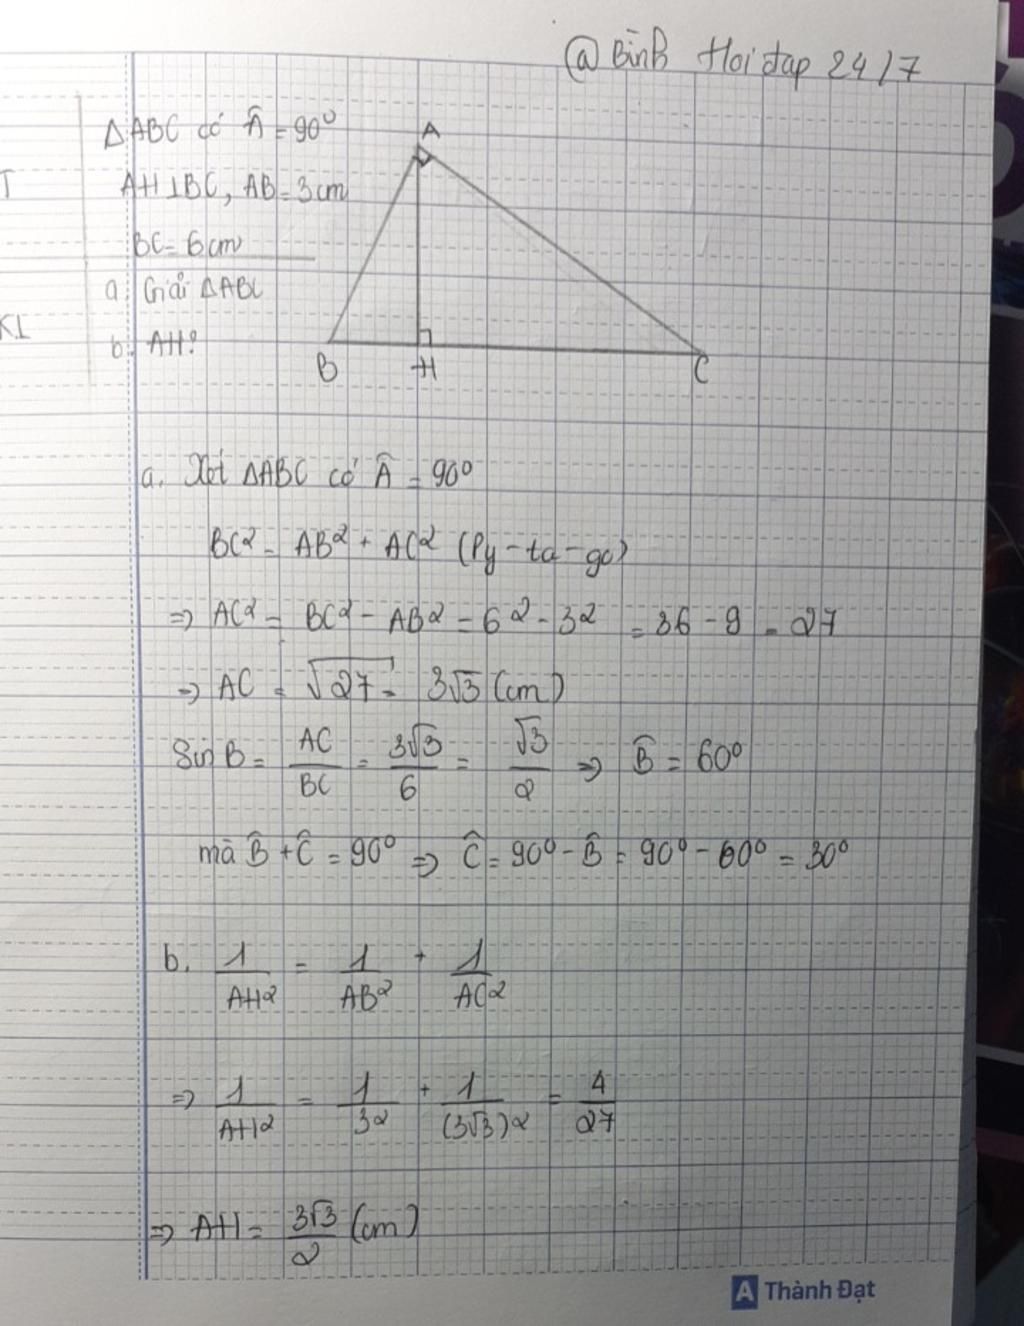 @ Bình Hoi đap 24/7
T
ΔABC có Â = 90°
AH⊥BC, AB = 3cm
BC = 6cm
KL
a. Giải ΔABC
b. AH?
A
B
H
C
a. Xét ΔABC có Â = 90°
BC² = AB² + AC² (Py-ta-go)
=> AC² = BC² - AB² = 6² - 3² = 36 - 9 = 27
=> AC = √27 = 3√3 (cm)
Sin B = AC/BC = 3√3/6 = √3/2 => B̂ = 60°
mà B̂ + Ĉ = 90° => Ĉ = 90° - B̂ = 90° - 60° = 30°
b. 1/AH² = 1/AB² + 1/AC²
=> 1/AH² = 1/3² + 1/(3√3)² = 4/27
=> AH = 3√3/2 (cm)
A Thành Đạt